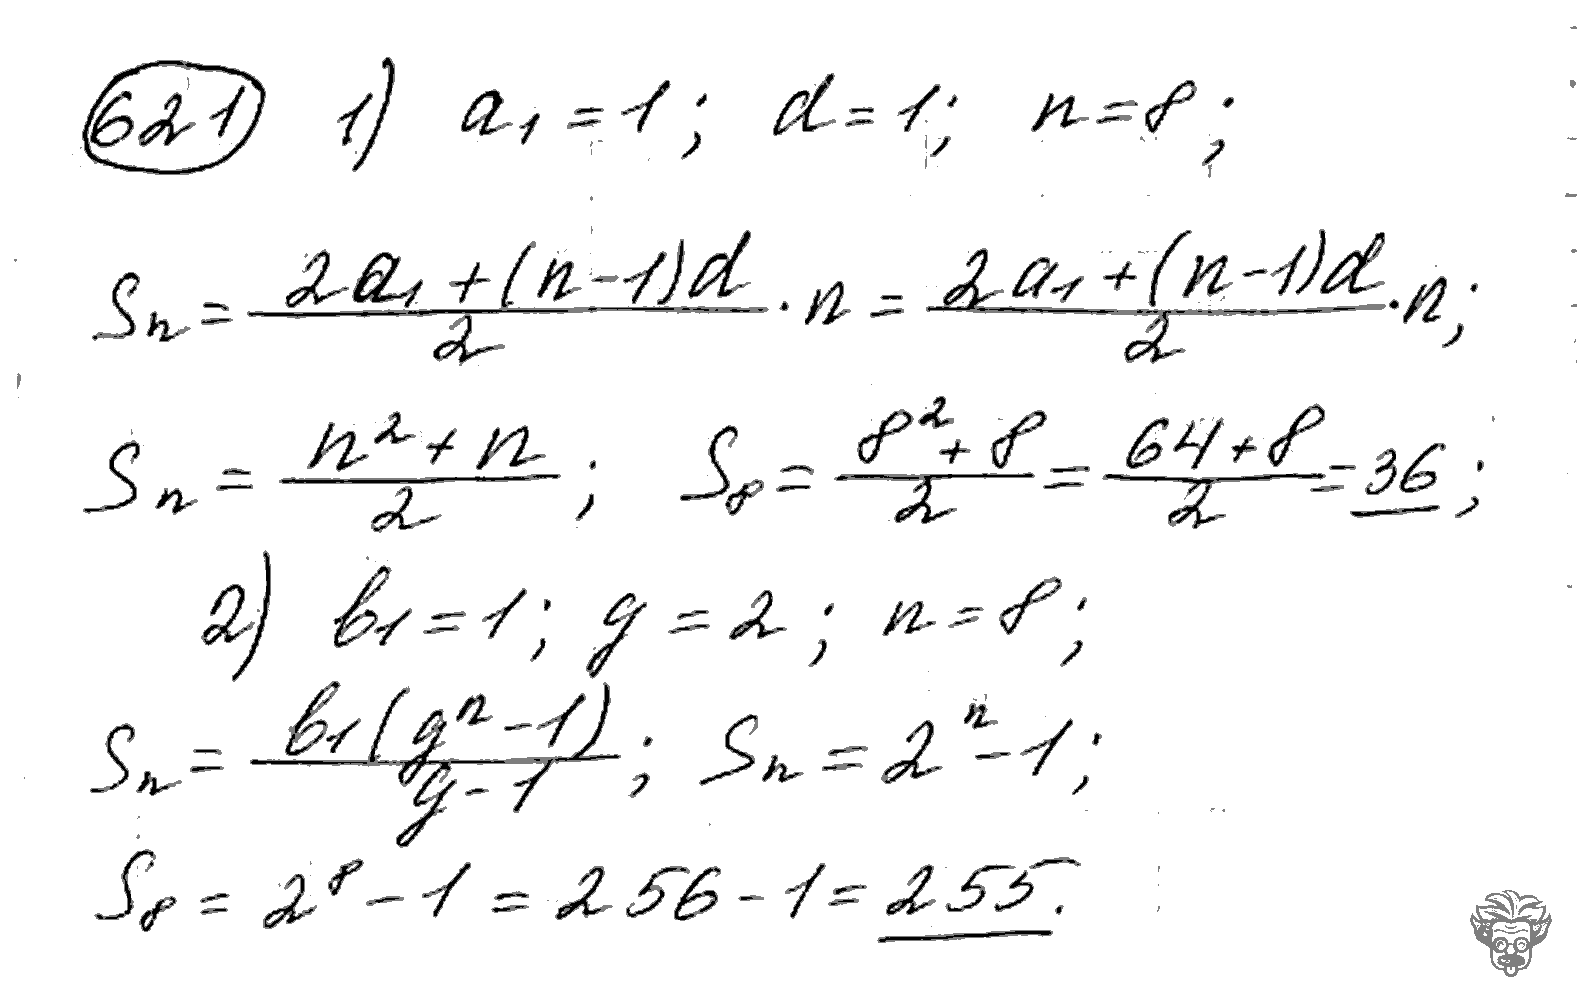 621 1) a₁ = 1; d = 1; n = 8;
Sₙ = (2a₁ + (n-1)d)/2 · n = (2a₁ + (n-1)d)/2 · n;
Sₙ = (n² + n)/2; S₈ = (8² + 8)/2 = (64 + 8)/2 = 36;
2) b₁ = 1; g = 2; n = 8;
Sₙ = b₁(gⁿ - 1)/(g - 1); Sₙ = 2ⁿ - 1;
S₈ = 2⁸ - 1 = 256 - 1 = 255.